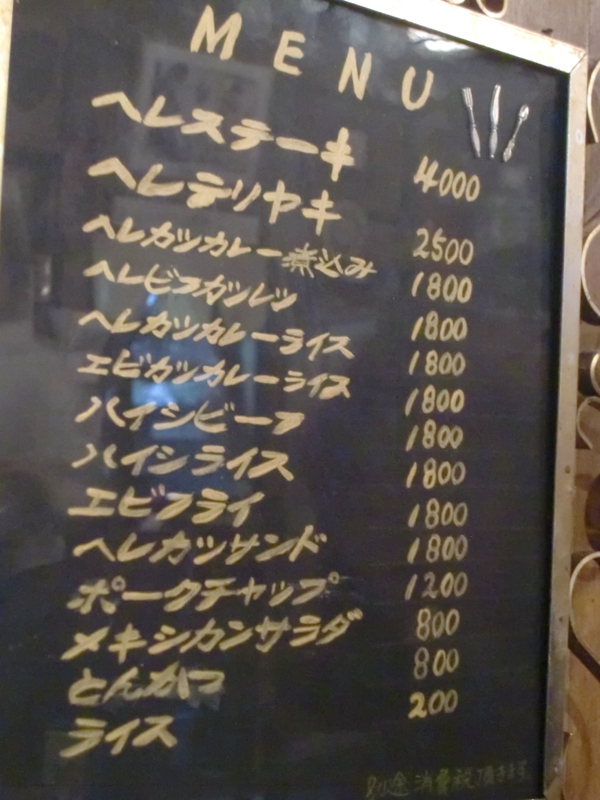 MENU
ヘレステーキ 4000
ヘレテリヤキ 2500
ヘレカツカレー煮込み 1800
ヘレビフカツレツ 1800
ヘレカツカレーライス 1800
エビカツカレーライス 1800
ハイシビーフ 1800
ハイシライス 1800
エビフライ 1800
ヘレカツサンド 1800
ポークチャップ 1200
メキシカンサラダ 800
とんかつ 800
ライス 200
別途消費税頂きます。